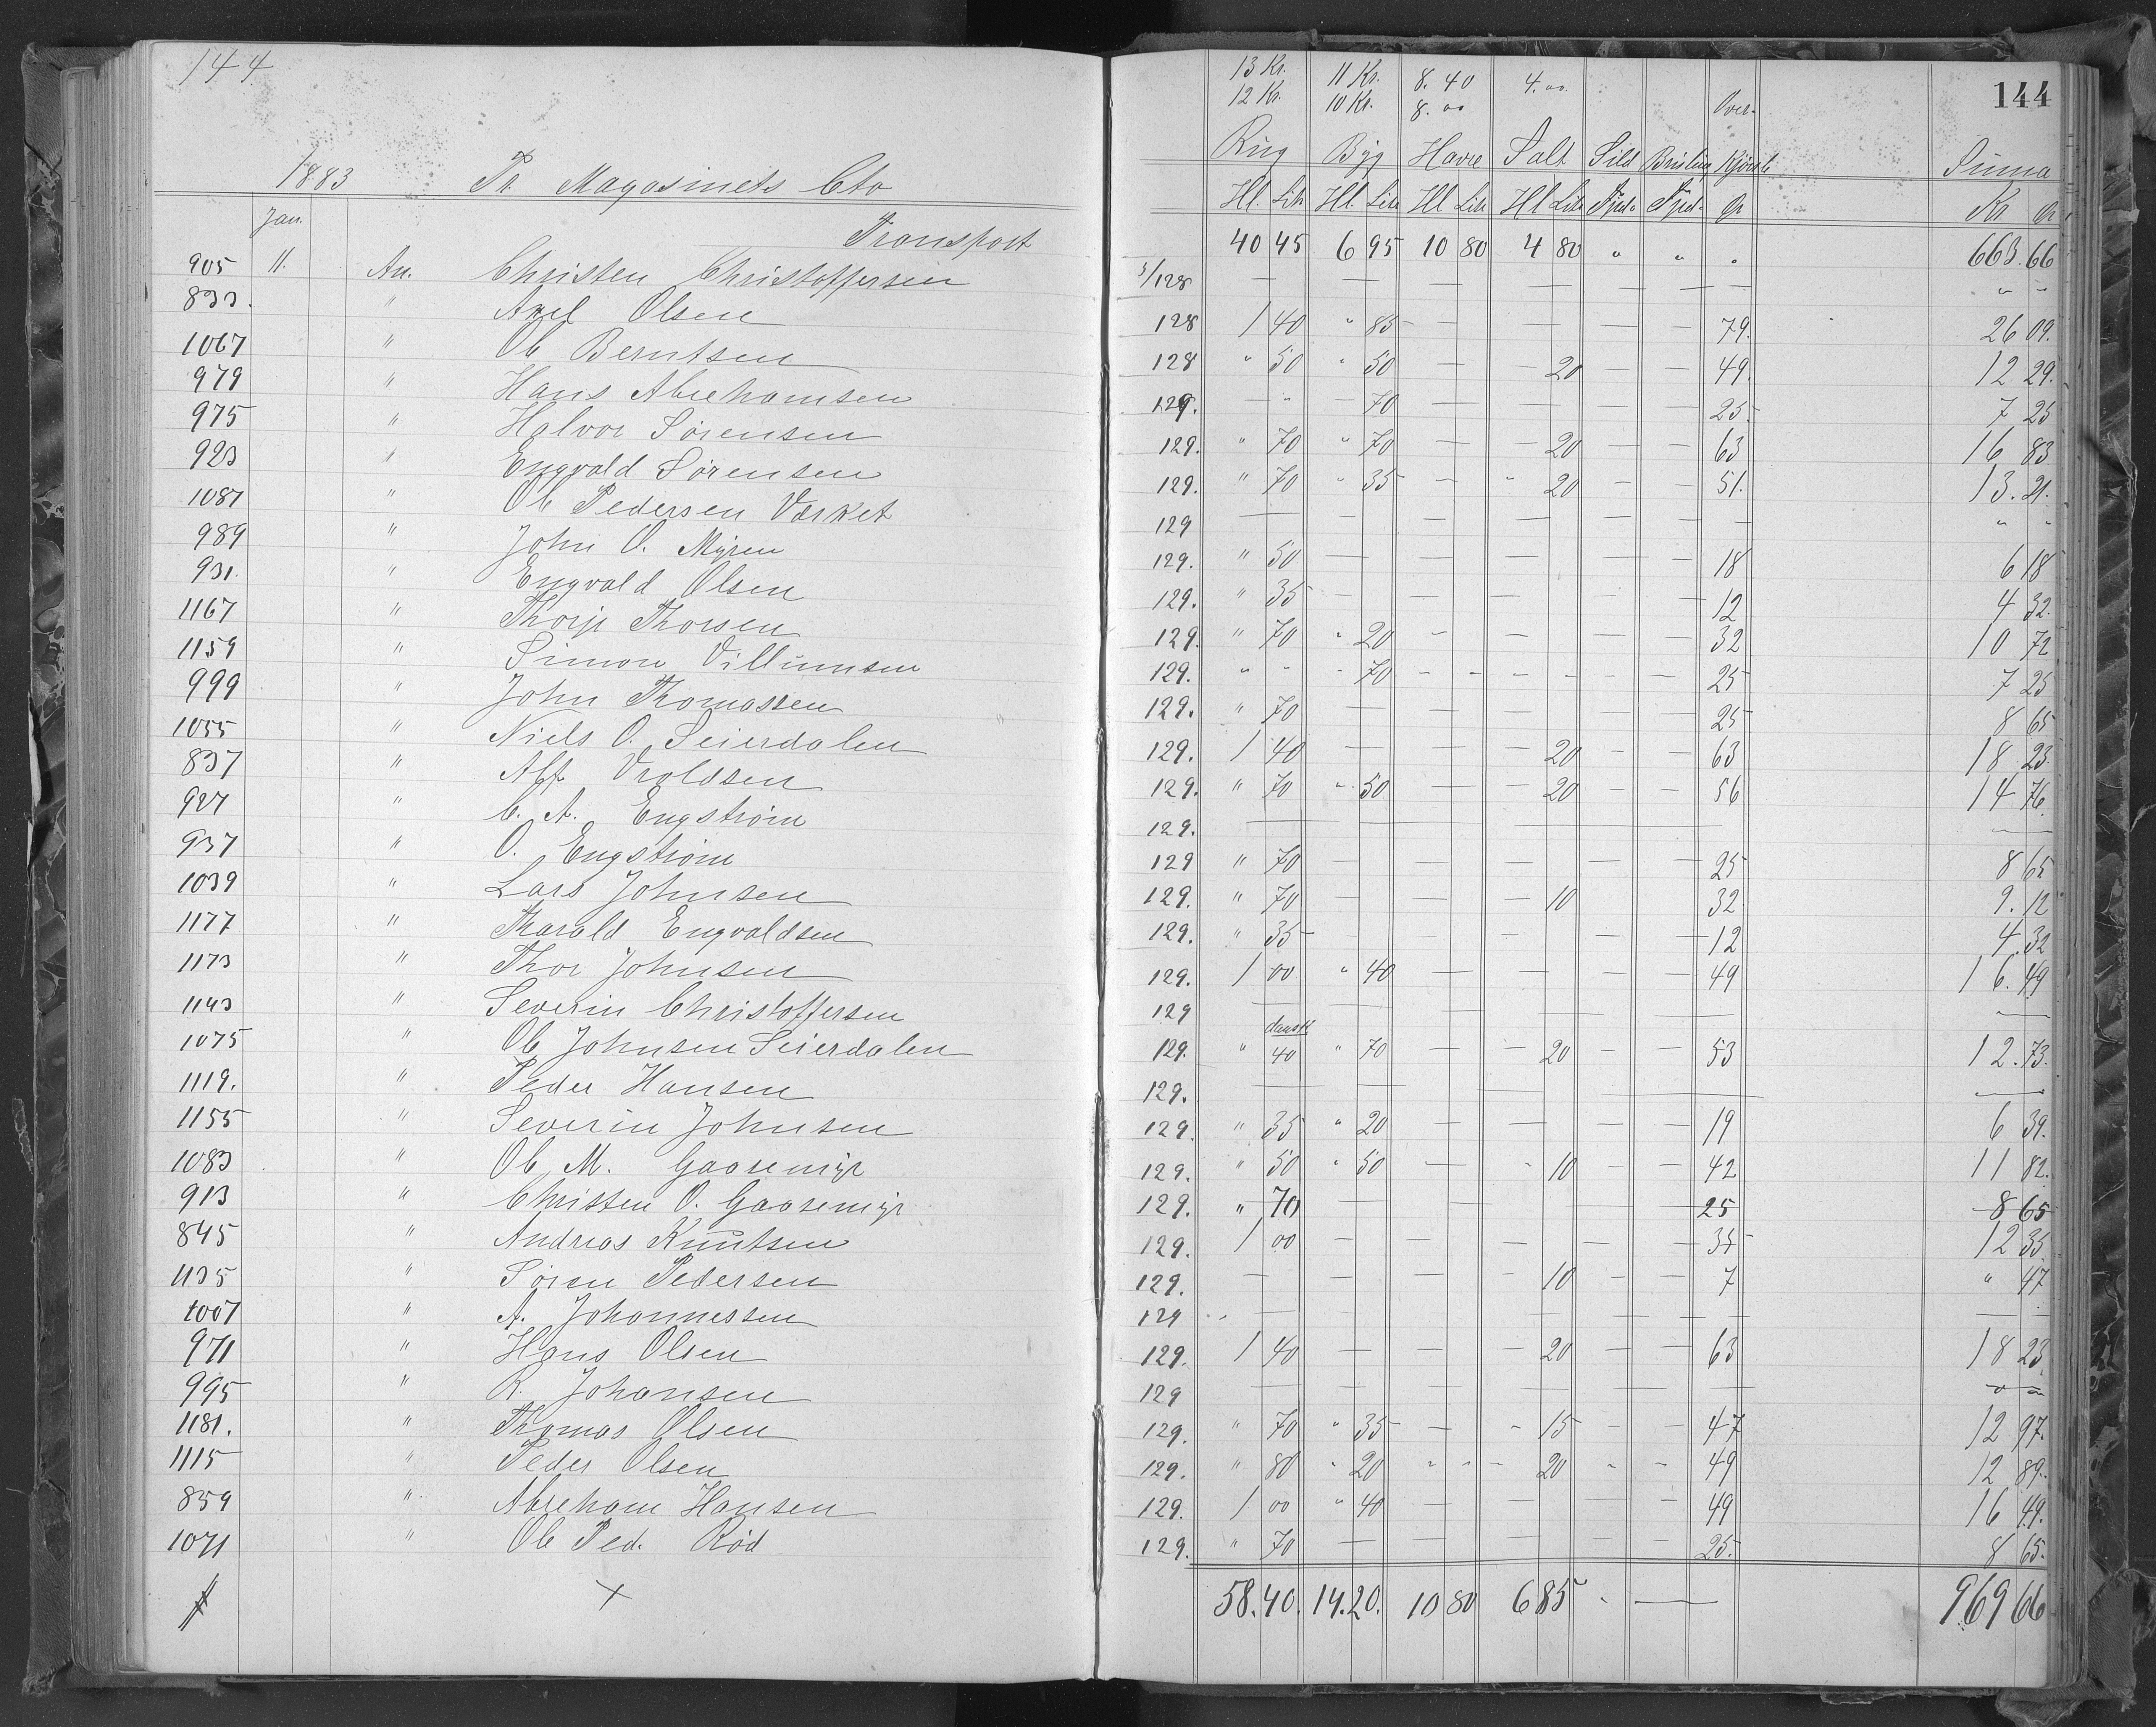 144
13 Kr. 11 Kr. 8. 40 4. 00 144
12 Kr. 10 Kr. 8. 00 Over-
Rüg Byg Havre Salt Sild Brisling Summa
1883 Pr. Magasinets Cto
Hl. Litr Hl. Litr Hl Litr Hl Litr Kr Ør
Jan.
Transport 40 45 6 95 10 80 4 80 " " " 663.66
905 11. An. Christen Christoffersen 3/128 — — — — — — — " —
833. " Axel Olsen 128 1 40 " 85 — — — — 79. 26 09.
1067 " Ole Berntsen 128 " 50 " 50 — — 20 — — 49. 12 29.
979 " Hans Abrehamsen 129. — " — 70 — — — — 25. 7 25
975 " Halvor Sørensen 129. " 70 " 70 — — 20 — — 63 16 83
923 " Engvald Sørensen 129. " 70 " 35 — " 20 — — 51. 13. 21.
1087 " Ole Pedersen Værket 129 — — — — — — — " "
989 " John O. Myren 129. " 50 — — — — — 18 6 18
931. " Engvald Olsen 129. " 35 — — — — — 12 4 32.
1167 " Thorje Thorsen 129 " 70 " 20 — — — — 32 10 72
1159 " Simon Villumsen 129. " " " 70 — — — — — — 25 7 25
999 " John Thomassen 129. " 70 — — — — — 25 8 65
1055 " Niels O. Seierdalen 129. 1 40 — — — 20 — — 63 18 23
837 " Alf. Vroldsen 129. " 70 " 50 — — 20 — — 56 14 76.
927 " C. A. Engstrøm 129. — — — — — — — —
937 " O. Engstrøm 129 " 70 — — — — — 25 8 65
1039 " Lars Johnsen 129. " 70 — — — 10 — — 32 9. 12
1177 " Tharald Engvaldsen 129. " 35 — — — — — 12 4.32
1173 " Thor Johnsen 129. 1 00 " 40 — — — — 49 16. 49
1143 " Severin Christoffersen 129 — — — — — — — —
dansk
1075 " Ole Johnsen Seierdalen 129. " 40 " 70 — — 20 — — 53 12.73.
1119. " Peder Hansen 129. — — — — — — — —
1155 " Severin Johnsen 129. " 35 " 20 — — — — 19 6 39.
1083 " Ole M. Gaasemyr 129. " 50 " 50 — " 10 — — 42 11 82.
913 " Christen O. Gaasemyr 129. " 70 — — — — — 25 8 65
845 " Andreas Knutsen 129. 1 00 — — — — — 35 12 35
1135 " Søren Pedersen 129. — — — — 10 — — 7 " 47
1007 " A. Johannessen 129 — — — — — — — —
971 " Hans Olsen 129. 1 40 — — — 20 — — 63 18 23
995 " R. Johansen 129 — — — — — — — —
1181. " Thomas Olsen 129. " 70 " 35 — " 15 — — 47 12 97.
1115 " Peder Olsen 129. " 80 " 20 " " — 20 " — 49 12 89.
859 " Abreham Hansen 129. 1 00 " 40 — — — — 49 16 49.
1071 " Ole Ped. Rød 129. " 70 — — — — — 25. 8 65.
58.40. 14.20. 10 80 6 85 " — 969 66